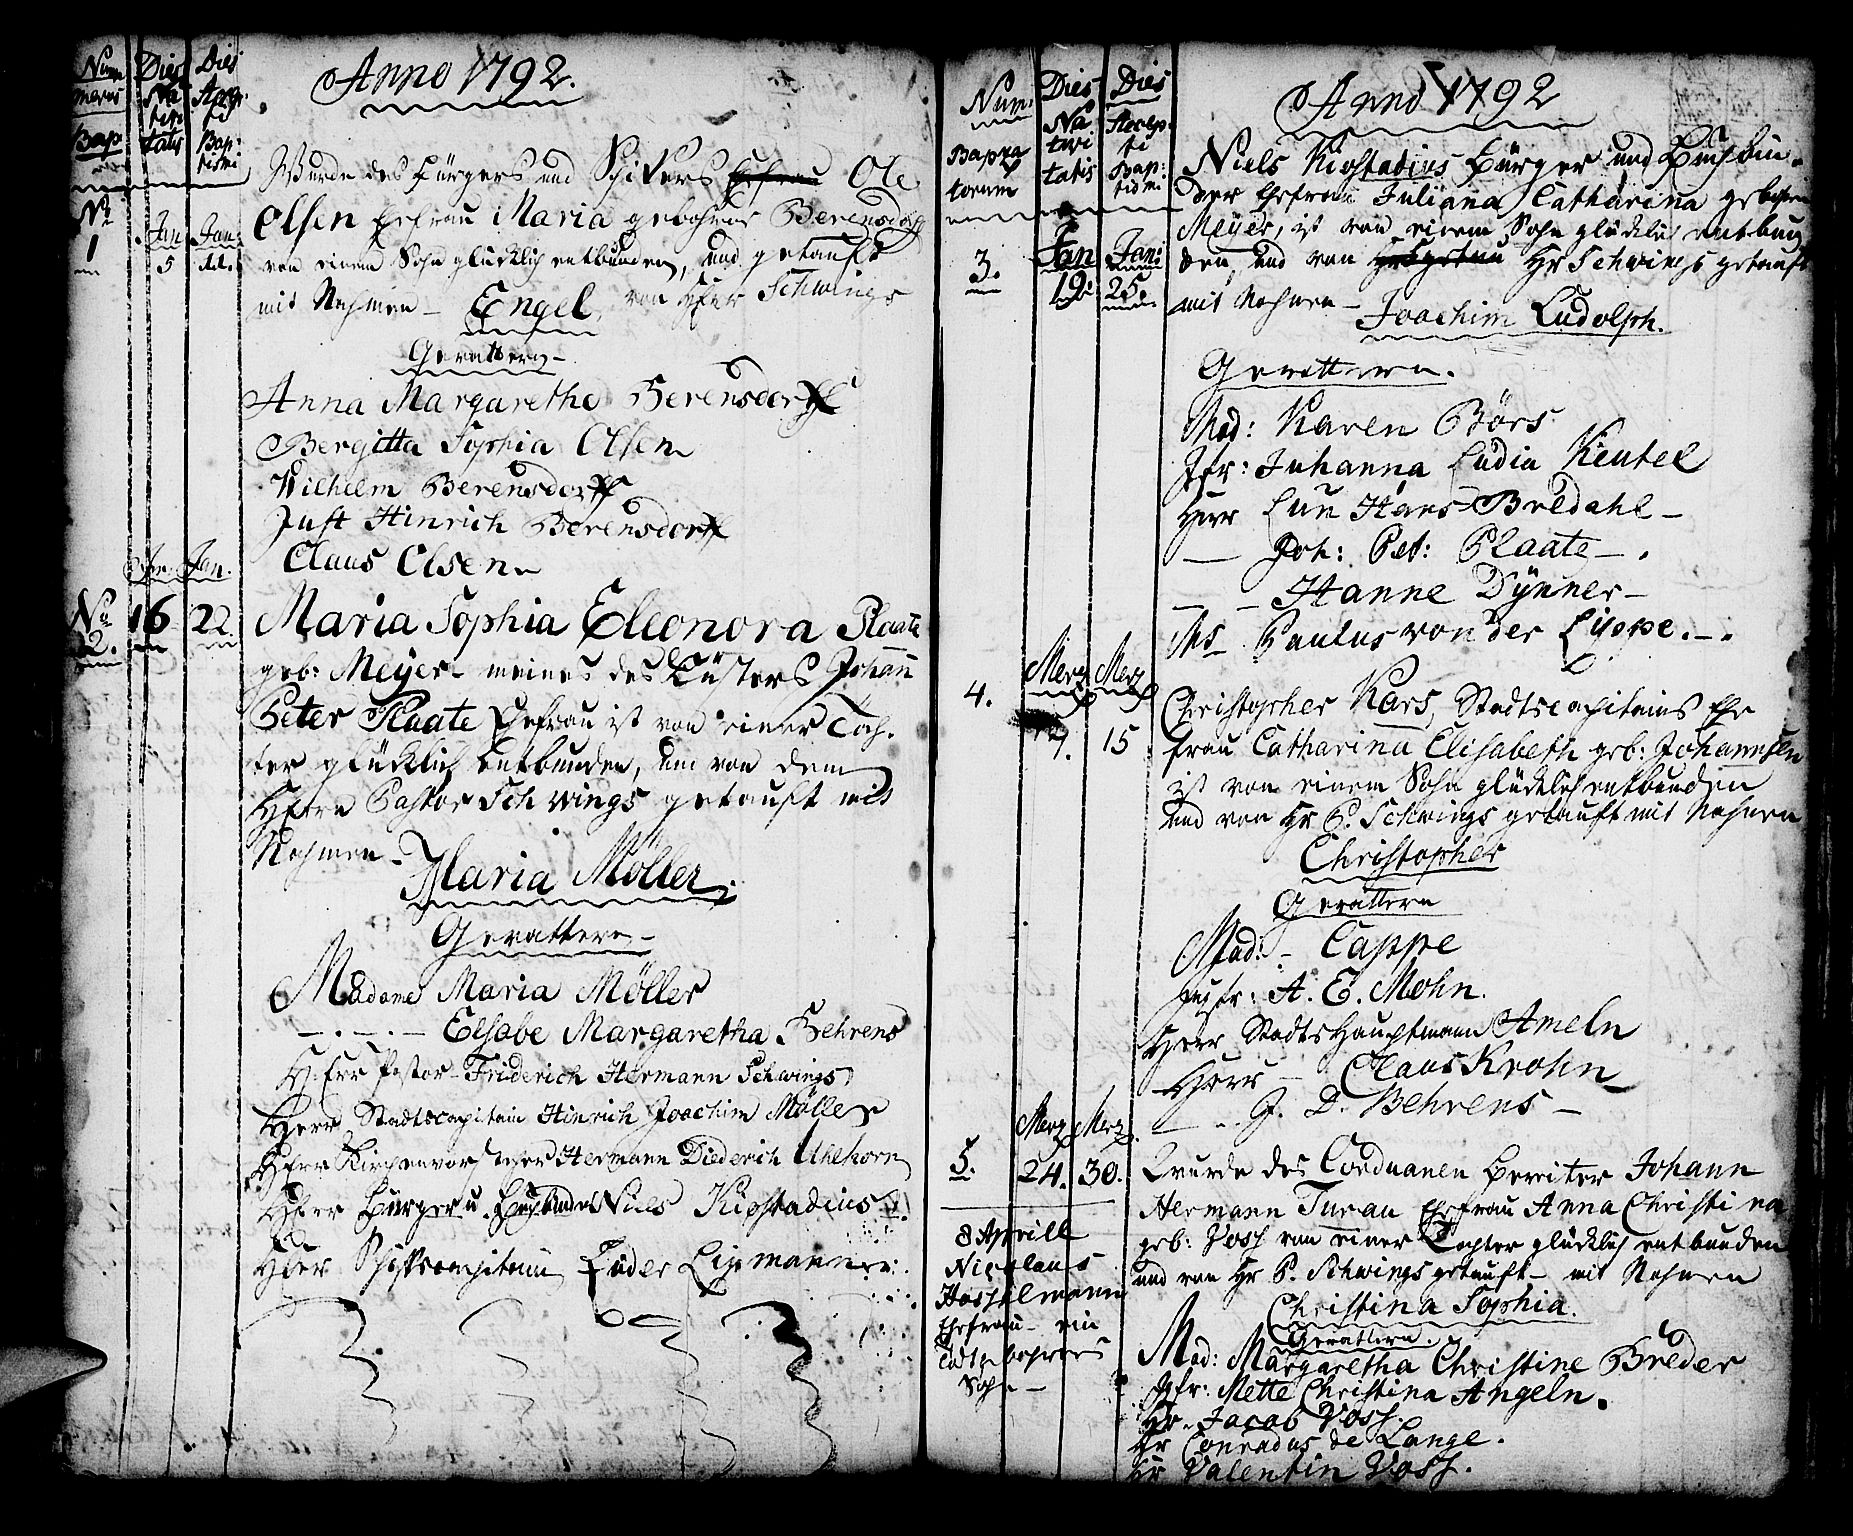 Nu-
merus
Bap
Dies
Na
tivi
tatis
Dies
Accep:
ti
Bap:
tismi
Anno 1792.
No
1
Jan
5
Jan:
Wurde des Bürgers und Schifers Ehefrau Ole
Olsen Ehefrau Maria gebohrne Berensdorff
von einem Sohn glücklich entbunden, und getauft
mit Nahmen - Engel, von Herr Schwings
Gevattern -
Anna Margaretha Berensdorff
Bergitta Sophia Olsen
Wilhelm Berensdorff
Just Hinrich Berensdorff
Claus Olsen
Jan. Jan.
No 2. 16 22 Maria Sophia Eleonora Plaate
geb: Meyer - meines des Küsters Johann
Peter Plaate Ehefrau ist von einer Toch-
ter glücklich entbunden, und von dem
Herrn Pastor Schwings getauft mit
Nahmen - Maria Möller.
Gevattern -
Madame Maria Möller
- . - . - Elsabe Margaretha Behrens
Herr Pastor - Friderich Hermann Schwings
Herr Stadtscapitain Hinrich Joachim Möller
Herr Kirchenvorsteher Hermann Diederich Uhlhorn
Herr Bürger u. Buchbinder Niels Kiostadius
Herr Schiffscapitain Lüder Lipmann
Num.
Baptiza
torum
Dies
Na
tivi
tatis
Dies
Accep
ti
Bap:
tismi
Anno 1792
3.
Jan
19.
Jan:
25.
Niels Kiostadius Bürger und Buchbin-
der Ehefrau Juliana Catharina gebohrne
Meyer, ist von einem Sohn glücklich entbun
den, und von Hr Schwings getauft
mit Nahmen - Joachim Ludolph.
Gevattern.
Mad: Karen Börs
Jfr: Juhanna Ludia Keutel
Herr Lun Hans Bredahl -
— Joh: Pet: Plaate - .
— - Hanne Dÿnner -
Ms Paulus von der Lippe. - .
4.
Merz
7.
Merz
15
Christopher Kars, Stadtscapitains Ehe
frau Catharina Elisabeth geb: Johannsen
ist von einem Sohn glücklich entbunden
und von Hr P. Schwings getauft mit Nahmen
Christopher
Gevattern
Mad: - Cappe
Jugfr: A. E. Mohn.
Herr Stadtshauptmann Ameln
Herr - Claus Krohn
— .. J. D. Behrens -
5.
Merz
24.
Merz.
30.
Wurde des Corduanen Bereiter Johann
Hermann Turau Ehefrau Anna Christina
geb: Voss von einer Tochter glücklich entbunden
und von Hr P. Schwings getauft - mit Nahmen
Christina Sophia.
Gevattern.
Mad: Margaretha Christine Breder
Jfr: Mette Christina Angeln.
Hr. Jacob Voss
Hr Conradus de Lange.
Hr Valentin Voss.
8 Aprill
Nicolaus
Hasselmann
Ehefrau - ein
todtgebohrner
Sohn -